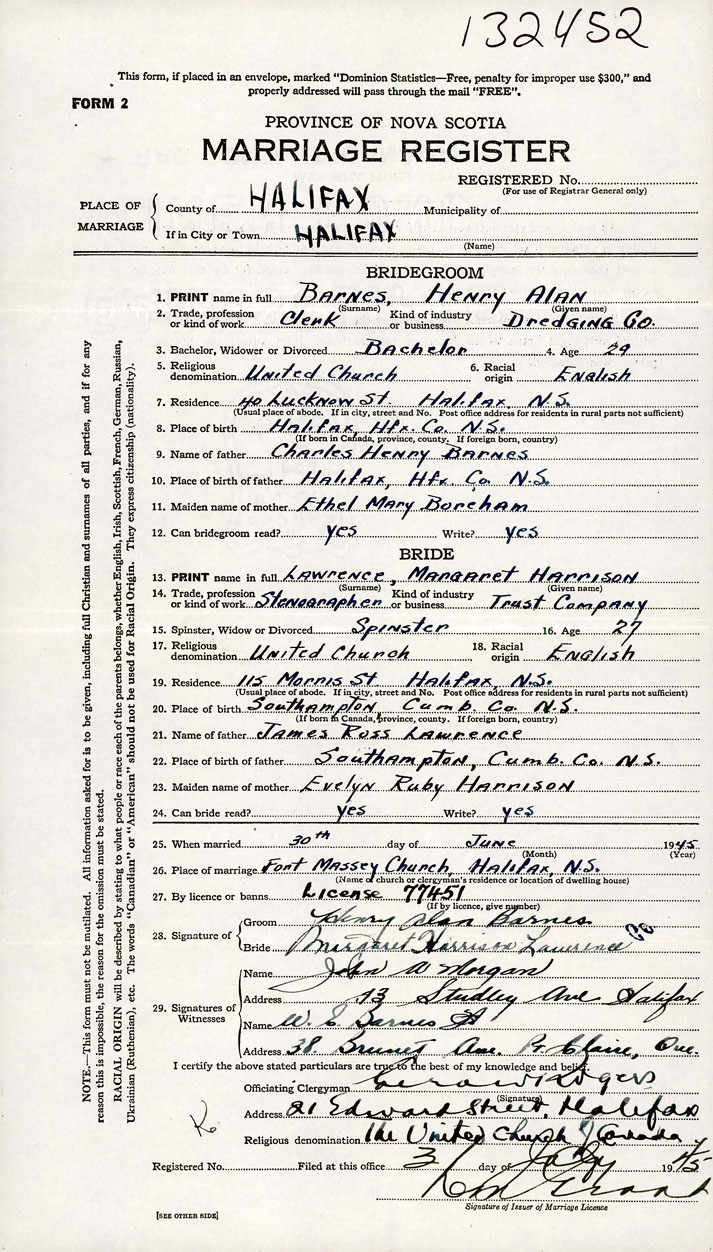 132452
This form, if placed in an envelope, marked "Dominion Statistics—Free, penalty for improper use $300," and
properly addressed will pass through the mail "FREE".
FORM 2
PROVINCE OF NOVA SCOTIA
MARRIAGE REGISTER
REGISTERED No.
(For use of Registrar General only)
PLACE OF MARRIAGE
County of HALIFAX Municipality of
If in City or Town HALIFAX
(Name)
BRIDEGROOM
1. PRINT name in full Barnes, Henry Alan
(Surname) (Given name)
2. Trade, profession or kind of work Clerk Kind of industry or business Dredging Co.
3. Bachelor, Widower or Divorced Bachelor 4. Age 29
5. Religious denomination United Church 6. Racial origin English
7. Residence 40 Lucknow St Halifax, N.S.
(Usual place of abode. If in city, street and No. Post office address for residents in rural parts not sufficient)
8. Place of birth Halifax, Hfx. Co. N.S.
(If born in Canada, province, county. If foreign born, country)
9. Name of father Charles Henry Barnes
10. Place of birth of father Halifax, Hfx. Co. N.S.
11. Maiden name of mother Ethel Mary Boreham
12. Can bridegroom read? yes Write? yes
BRIDE
13. PRINT name in full Lawrence, Margaret Harrison
(Surname) (Given name)
14. Trade, profession or kind of work Stenographer Kind of industry or business Trust Company
15. Spinster, Widow or Divorced Spinster 16. Age 27
17. Religious denomination United Church 18. Racial origin English
19. Residence 115 Morris St Halifax, N.S.
(Usual place of abode. If in city, street and No. Post office address for residents in rural parts not sufficient)
20. Place of birth Southampton, Cumb. Co. N.S.
(If born in Canada, province, county. If foreign born, country)
21. Name of father James Ross Lawrence
22. Place of birth of father Southampton, Cumb. Co. N.S.
23. Maiden name of mother Evelyn Ruby Harrison
24. Can bride read? yes Write? yes
25. When married 30th day of June 1945
(Month) (Year)
26. Place of marriage Fort Massey Church, Halifax, N.S.
(Name of church or clergyman's residence or location of dwelling house)
27. By licence or banns License 77451
(If by licence, give number)
28. Signature of
Groom Henry Alan Barnes
Bride Margaret Harrison Lawrence
29. Signatures of Witnesses
Name John W Morgan
Address 13 Studley Ave Halifax
Name W. E Barnes
Address 38 Brunet Ave. Pt. Claire, Que.
I certify the above stated particulars are true to the best of my knowledge and belief.
Officiating Clergyman
(Signature)
Address 21 Edward Street. Halifax
Religious denomination The United Church of Canada
Registered No. Filed at this office 3 day of July 1945
Signature of Issuer of Marriage Licence
[SEE OTHER SIDE]
NOTE.—This form must not be mutilated. All information asked for is to be given, including full Christian and surnames of all parties, and if for any
reason this is impossible, the reason for the omission must be stated.
RACIAL ORIGIN will be described by stating to what people or race each of the parents belongs, whether English, Irish, Scottish, French, German, Russian,
Ukrainian (Ruthenian), etc. The words "Canadian" or "American" should not be used for Racial Origin. They express citizenship (nationality).